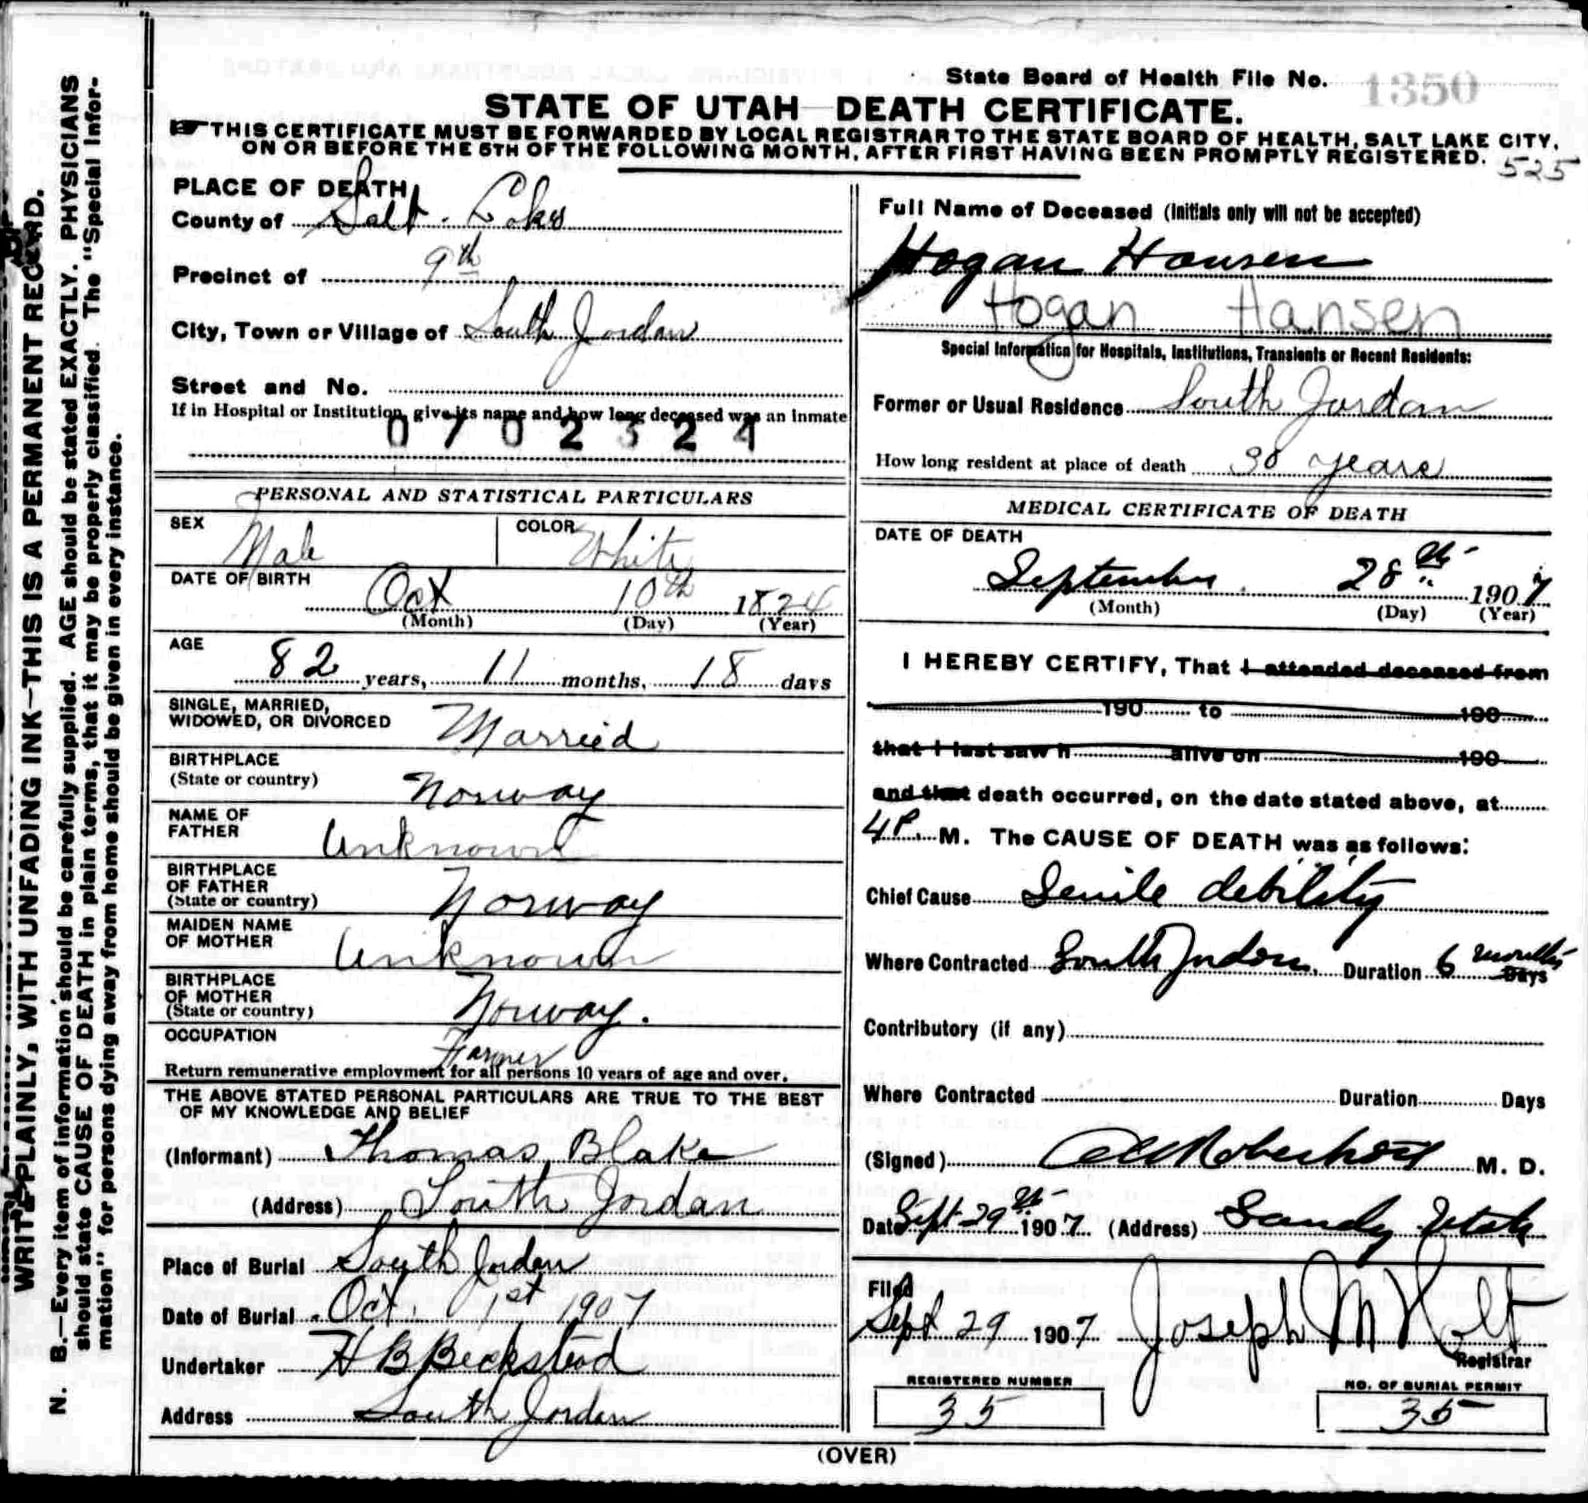 State Board of Health File No. 1350
STATE OF UTAH DEATH CERTIFICATE.
THIS CERTIFICATE MUST BE FORWARDED BY LOCAL REGISTRAR TO THE STATE BOARD OF HEALTH, SALT LAKE CITY,
ON OR BEFORE THE 5TH OF THE FOLLOWING MONTH, AFTER FIRST HAVING BEEN PROMPTLY REGISTERED.
525
WRITE PLAINLY, WITH UNFADING INK—THIS IS A PERMANENT RECORD.
N. B.—Every item of information should be carefully supplied. AGE should be stated EXACTLY. PHYSICIANS
should state CAUSE OF DEATH in plain terms, that it may be properly classified. The "Special Infor-
mation" for persons dying away from home should be given in every instance.
PLACE OF DEATH
County of Salt Lake
Precinct of 9th
City, Town or Village of South Jordan
Street and No.
If in Hospital or Institution, give its name and how long deceased was an inmate
0702324
PERSONAL AND STATISTICAL PARTICULARS
SEX Male COLOR White
DATE OF BIRTH Oct 10th 1824
(Month) (Day) (Year)
AGE
82 years, 11 months, 18 days
SINGLE, MARRIED,
WIDOWED, OR DIVORCED Married
BIRTHPLACE
(State or country) Norway
NAME OF
FATHER Unknown
BIRTHPLACE
OF FATHER
(State or country) Norway
MAIDEN NAME
OF MOTHER Unknown
BIRTHPLACE
OF MOTHER
(State or country) Norway.
OCCUPATION
Farmer
Return remunerative employment for all persons 10 years of age and over.
THE ABOVE STATED PERSONAL PARTICULARS ARE TRUE TO THE BEST
OF MY KNOWLEDGE AND BELIEF
(Informant) Thomas Blake
(Address) South Jordan
Place of Burial South Jordan
Date of Burial Oct. 1st 1907
Undertaker H B Beckstead
Address South Jordan
Full Name of Deceased (Initials only will not be accepted)
Hogan Hansen
Hogan Hansen
Special Information for Hospitals, Institutions, Transients or Recent Residents:
Former or Usual Residence South Jordan
How long resident at place of death 30 years
MEDICAL CERTIFICATE OF DEATH
DATE OF DEATH
September 28th 1907
(Month) (Day) (Year)
I HEREBY CERTIFY, That I attended deceased from
190 to 190
that I last saw h alive on 190
and that death occurred, on the date stated above, at
4 P. M. The CAUSE OF DEATH was as follows:
Chief Cause Senile debility
Where Contracted South Jordan. Duration 6 months Days
Contributory (if any)
Where Contracted Duration Days
(Signed) Robertson M. D.
Date Sept 29th 1907 (Address) Sandy Utah
Filed
Sept 29 1907 Joseph M Holt
Registrar
REGISTERED NUMBER
35
NO. OF BURIAL PERMIT
35
(OVER)